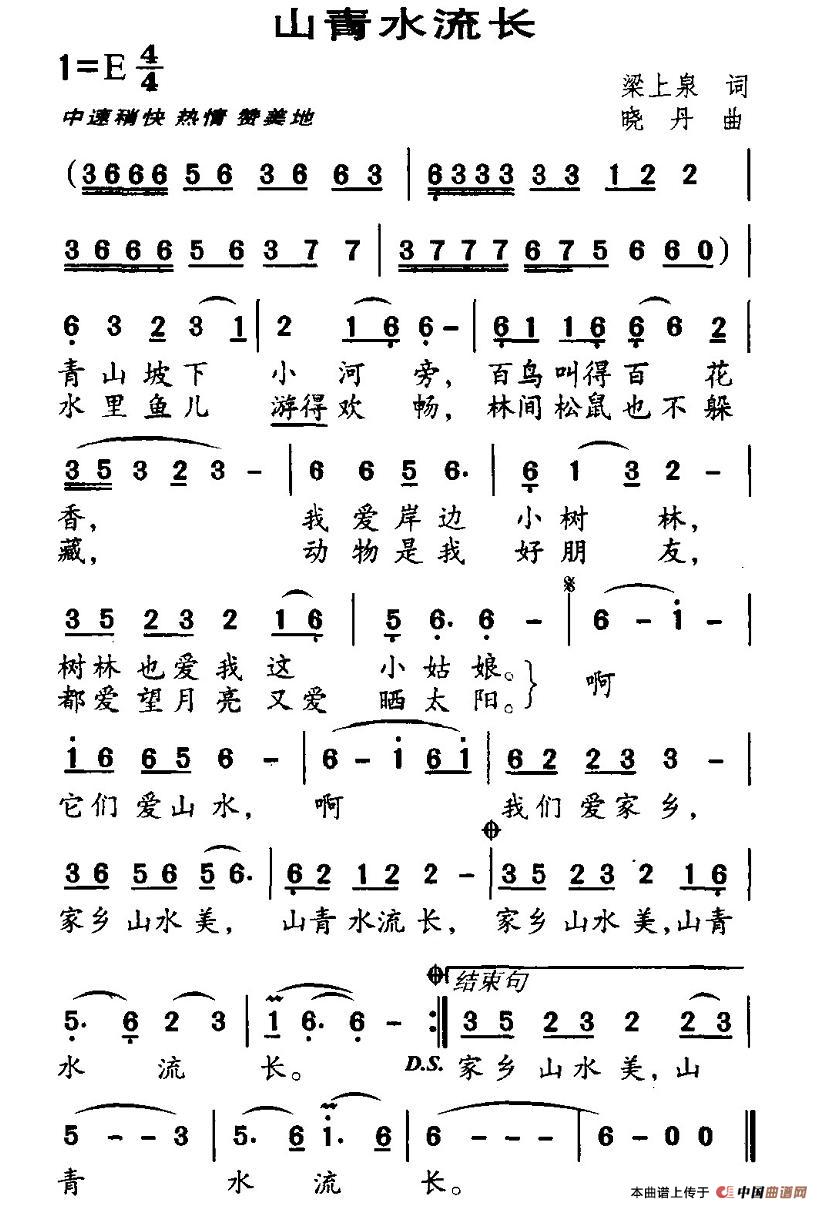 山青水流长
1=E 4/4
梁上泉 词
中速稍快 热情 赞美地
晓丹 曲
(3666 56 36 63 | 6333 33 122 |
3666 56 37 7 | 3777 675 660) |
6 3 2 3 1 | 2 1 6 6 - | 61 16 6 6 2 |
青山坡下 小河旁, 百鸟叫得百花
水里鱼儿 游得欢畅, 林间松鼠也不躲
35 3 2 3 - | 6 6 5 6· | 6 1 3 2 - |
香, 我爱岸边 小树林,
藏, 动物是我 好朋友,
35 23 2 16 | 5 6· 6 - | 6 - 1 - |
树林也爱我这 小姑娘。 啊
都爱望月亮又爱 晒太阳。
16 65 6 - | 6 - 1 61 | 62 23 3 - |
它们爱山水, 啊 我们爱家乡,
36 56 56· | 62 12 2 - | 35 23 2 16 |
家乡山水美, 山青水流长, 家乡山水美,山青
结束句
5· 6 2 3 | 1 6· 6 - :| 35 23 2 23 |
水流 长。 D.S. 家乡山水美,山
5 - - 3 | 5· 6 1· 6 | 6 - - - | 6 - 0 0 |
青 水流 长。
本曲谱上传于 中国曲谱网